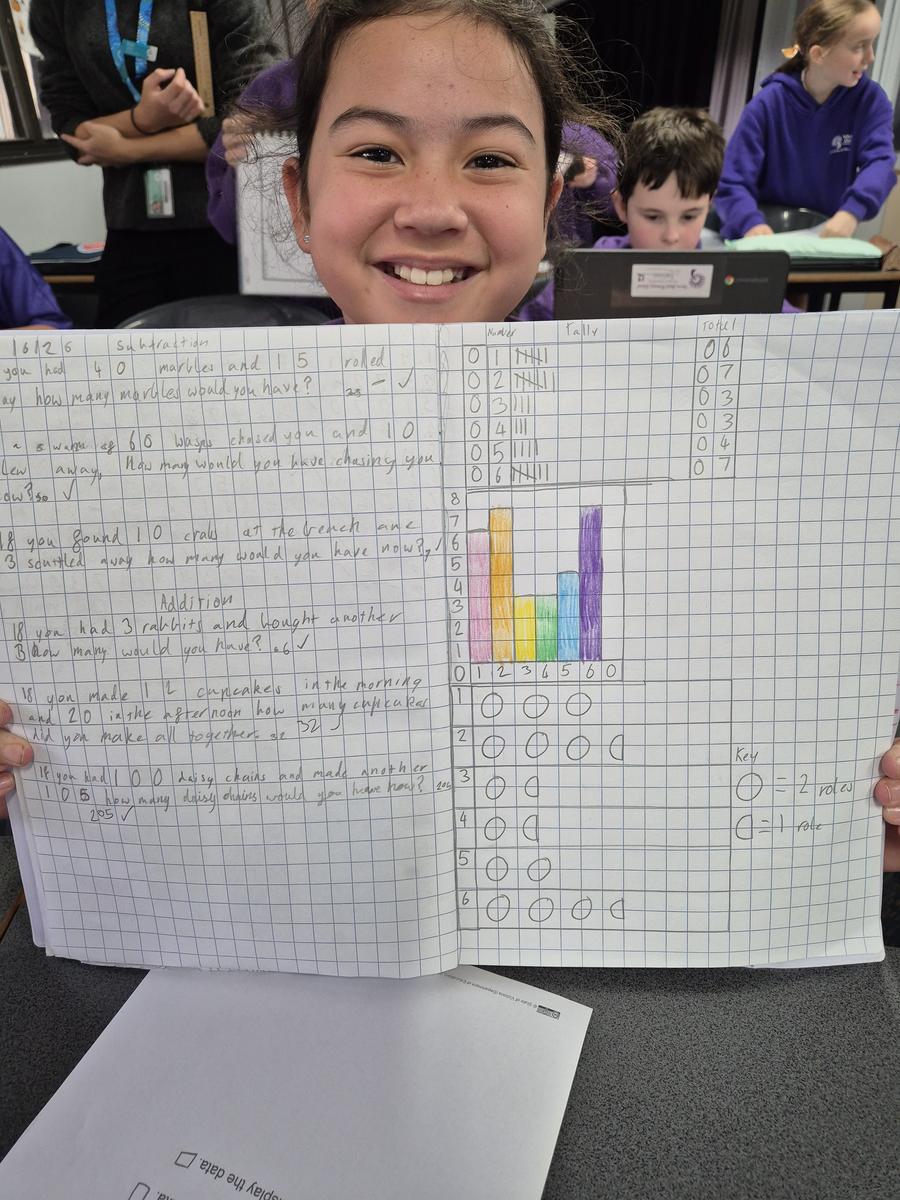 16126 Subtraction
you had 40 marbles and 15 rolled
ay how many marbles would you have? 25 - ✓
60 wasps chased you and 10
lew away. How many would you have chasing you
ow? 50 ✓
18 you found 10 crabs at the beach and
3 scuttled away how many would you have now? 7 ✓
Addition
18 you had 3 rabbits and bought another
3 how many would you have? 6 ✓
18 you made 12 cupcakes in the morning
and 20 in the afternoon how many cupcakes
did you make all together. 32 32
If you had 100 daisy chains and made another
105 how many daisy chains would you have now?
205 ✓
Number Tally Total
0 1 06
0 2 07
0 3 03
0 4 03
0 5 04
0 6 07
8
7
6
5
4
3
2
1
0 1 2 3 4 5 6 0
1
2
3
4
5
6
Key
= 2 roles
= 1 role
splay the data.